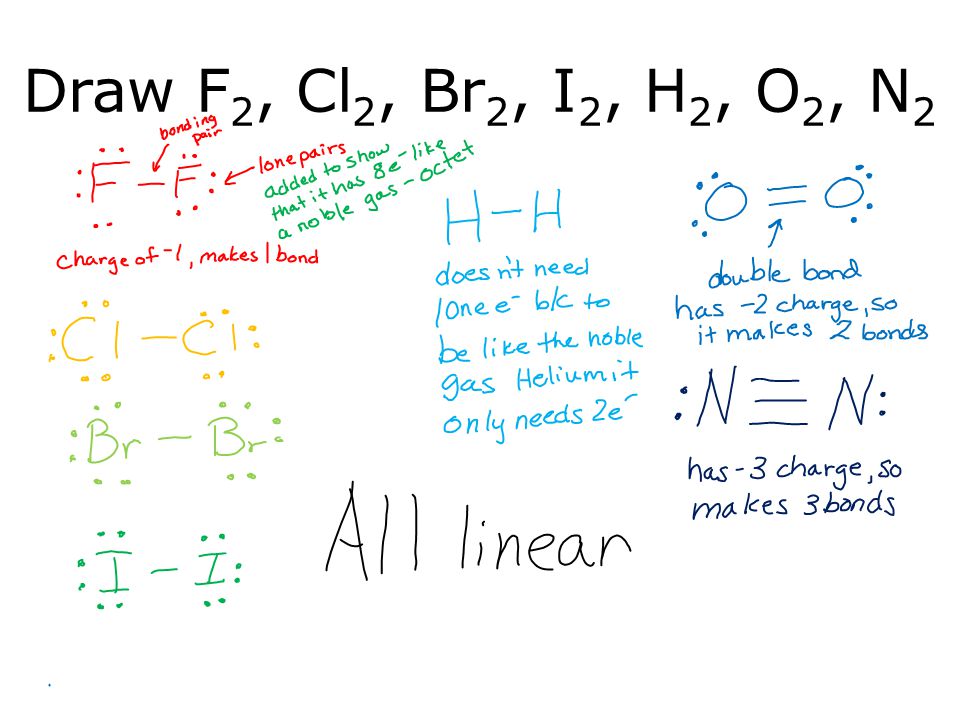 Draw F₂, Cl₂, Br₂, I₂, H₂, O₂, N₂
bonding
pair
F – F
lone pairs
added to show
that it has 8e⁻ like
a noble gas – octet
charge of -1, makes 1 bond
Cl – Cl
Br – Br
I – I
H – H
doesn't need
lone e⁻ b/c to
be like the noble
gas Helium it
only needs 2e⁻
All linear
O = O
double bond
has -2 charge, so
it makes 2 bonds
:N ≡ N:
has -3 charge, so
makes 3 bonds